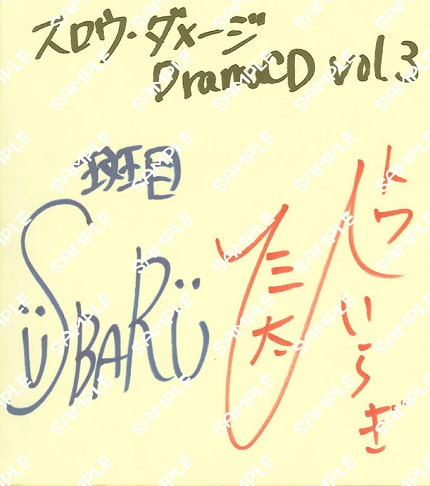 スロウ・ダメージ
DramaCD vol.3
班目
SUBARU
トワ
ひいらぎ
三太
SAMPLE